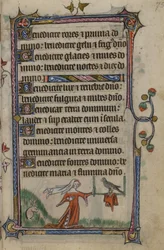 Benedicite rores & pruina do
mino: benedicite gelu & frig' dño
Benedicite glacies & niues do
mino: benedicite noctes & dies do
mino
Benedicite lux & tenebre dño:
benedicite fulgura & nubes dño.
Benedicat terra dominum:
laudet & sup exaltet eum i secula.
Benedicite montes & colles
domino: benedicite uniuersa
germinantia in terra domino
Benedicite fontes domino: be
nedicite maria & flumina dño.